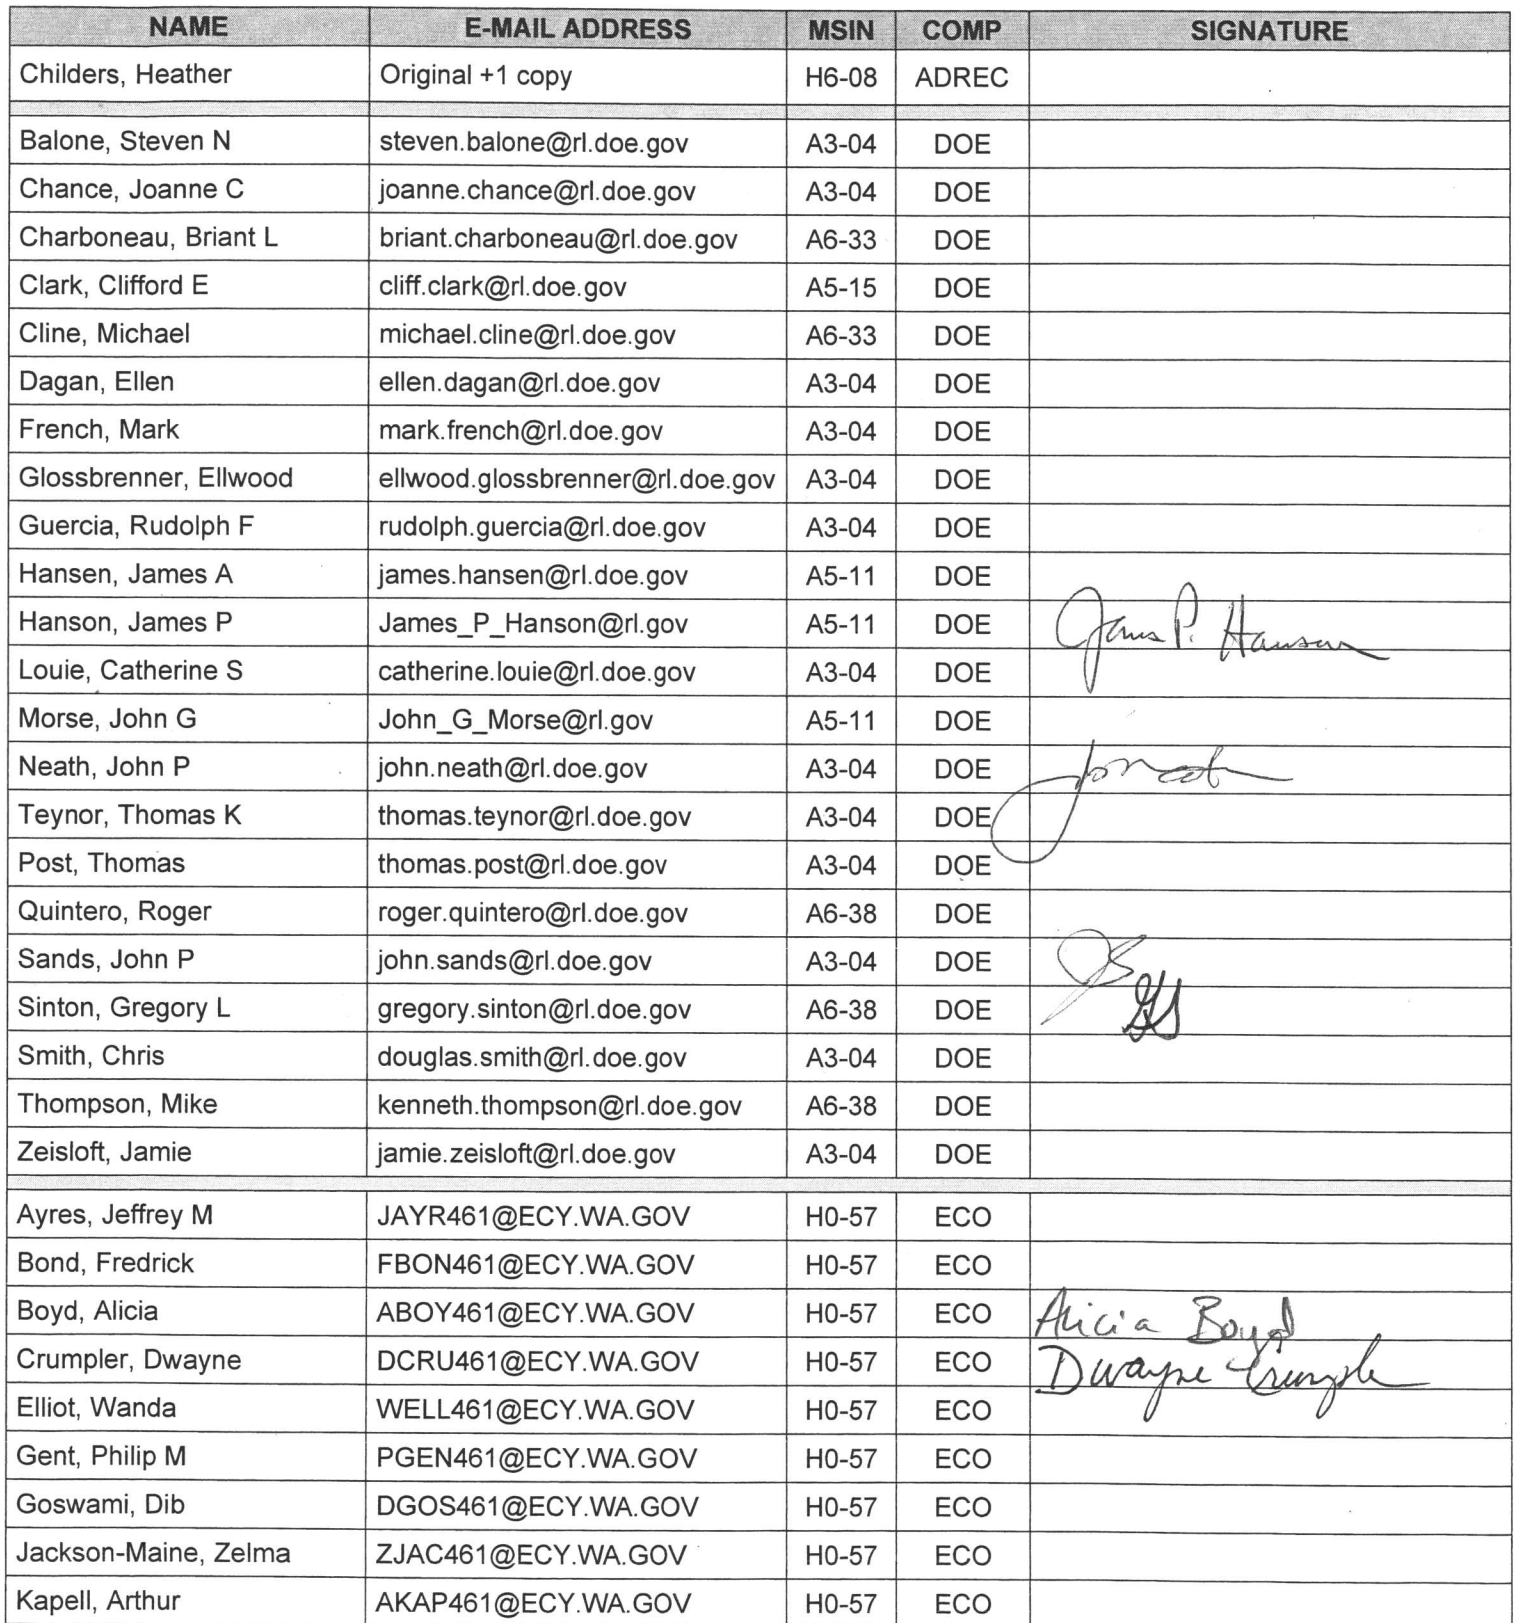 NAME E-MAIL ADDRESS MSIN COMP SIGNATURE
Childers, Heather Original +1 copy H6-08 ADREC
Balone, Steven N steven.balone@rl.doe.gov A3-04 DOE
Chance, Joanne C joanne.chance@rl.doe.gov A3-04 DOE
Charboneau, Briant L briant.charboneau@rl.doe.gov A6-33 DOE
Clark, Clifford E cliff.clark@rl.doe.gov A5-15 DOE
Cline, Michael michael.cline@rl.doe.gov A6-33 DOE
Dagan, Ellen ellen.dagan@rl.doe.gov A3-04 DOE
French, Mark mark.french@rl.doe.gov A3-04 DOE
Glossbrenner, Ellwood ellwood.glossbrenner@rl.doe.gov A3-04 DOE
Guercia, Rudolph F rudolph.guercia@rl.doe.gov A3-04 DOE
Hansen, James A james.hansen@rl.doe.gov A5-11 DOE
Hanson, James P James_P_Hanson@rl.gov A5-11 DOE James P. Hanson
Louie, Catherine S catherine.louie@rl.doe.gov A3-04 DOE
Morse, John G John_G_Morse@rl.gov A5-11 DOE
Neath, John P john.neath@rl.doe.gov A3-04 DOE
Teynor, Thomas K thomas.teynor@rl.doe.gov A3-04 DOE
Post, Thomas thomas.post@rl.doe.gov A3-04 DOE
Quintero, Roger roger.quintero@rl.doe.gov A6-38 DOE
Sands, John P john.sands@rl.doe.gov A3-04 DOE
Sinton, Gregory L gregory.sinton@rl.doe.gov A6-38 DOE
Smith, Chris douglas.smith@rl.doe.gov A3-04 DOE
Thompson, Mike kenneth.thompson@rl.doe.gov A6-38 DOE
Zeisloft, Jamie jamie.zeisloft@rl.doe.gov A3-04 DOE
Ayres, Jeffrey M JAYR461@ECY.WA.GOV H0-57 ECO
Bond, Fredrick FBON461@ECY.WA.GOV H0-57 ECO
Boyd, Alicia ABOY461@ECY.WA.GOV H0-57 ECO Alicia Boyd
Crumpler, Dwayne DCRU461@ECY.WA.GOV H0-57 ECO Dwayne Crumpler
Elliot, Wanda WELL461@ECY.WA.GOV H0-57 ECO
Gent, Philip M PGEN461@ECY.WA.GOV H0-57 ECO
Goswami, Dib DGOS461@ECY.WA.GOV H0-57 ECO
Jackson-Maine, Zelma ZJAC461@ECY.WA.GOV H0-57 ECO
Kapell, Arthur AKAP461@ECY.WA.GOV H0-57 ECO